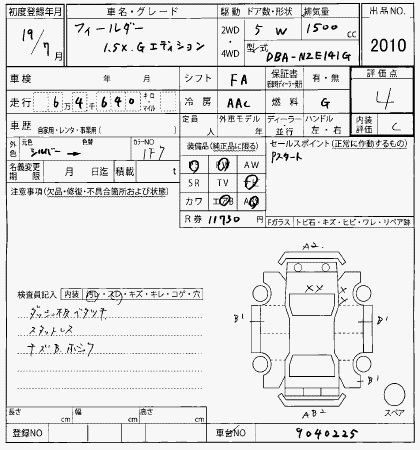 初度登録年月 車名・グレード 駆動 ドア数・形状 排気量 出品NO.
19/7月 フィールダー 1.5X.Gエディション 2WD ・ 4WD 5 W 1500 cc 2010
型式 DBA-NZE141G
車検 年 月 シフト FA 保証書 有・無 評価点
走行 6万4千640 キロ・マイル 冷房 AAC 燃料 G 4
車歴 自家用・レンタ・事業用( ) 定員 人 外車モデル 年 ディーラー・並行 ハンドル 左・右 内装評価 C
外色 元色 シルバー → 色替 カラーNO 1F7 装備品(純正品に限る) セールスポイント(正常に作動するもの)
名義変更期限 月 日迄 積載 t AW Pスタート
注意事項(欠品・修復・不具合箇所および状態) SR TV
カワ
R券 11730 Fガラス トビ石・キズ・ヒビ・ワレ・リペア跡
A2.
XX
X
B' B'
検査員記入 内装 キズ・キレ・コゲ・穴
スタットレス
AB2 スペア
長さ cm 幅 cm 高さ cm
登録NO 車台NO 9040225